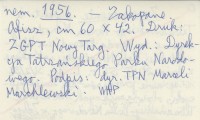 nem. 1956. – Zakopane
Afisz, cm 60 x 42. Druk:
ZGPT Nowy Targ. Wyd. Dyrek-
cja Tatrzańskiego Parku Narodo-
wego. Podpis: dyr. TPN Marceli
Marchlewski. WAP